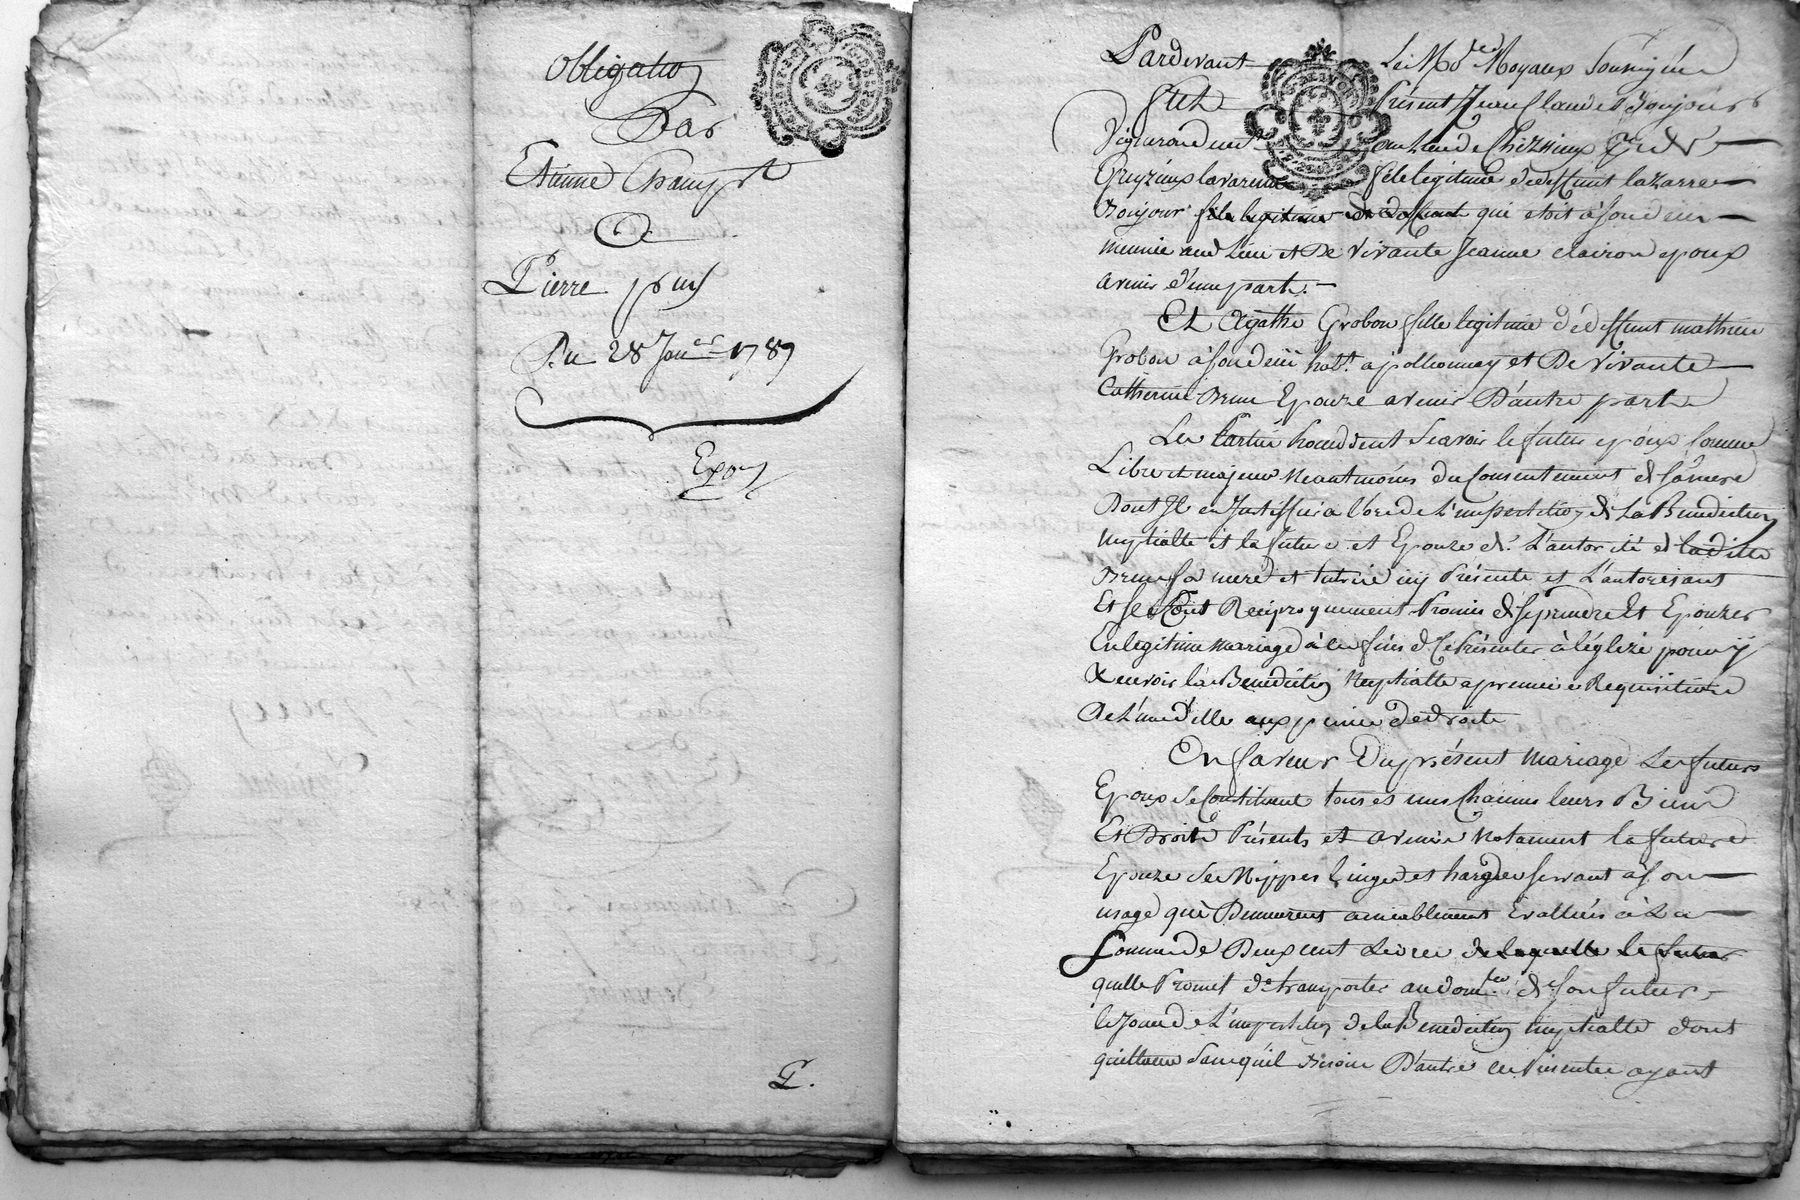 Obligation
Par
Etienne Champt
A
Pierre
Du 28 Janer 1789
Expon
P.
Pardevant Le No.re Royaux Soussigné
fut Présent Jean Claude Boujour
Vigneron de
Gryzieux lavarenne fils legitime de deffunt lazarre
Boujour fils legitime de deffunt qui etoit à son
audt lieu et De vivante Jeanne clairon epoux
avenir d'une part.
Et Agathe Grobon fille legitime de deffunt mathieu
Grobon à son habt. a pollionnay et De vivante
Catherine Brun Epouze avenir D'autre part
Les Partie Procedent Scavoir le futur epoux Comme
Libre et majeur Neantmoins du Consentement de sa mere
Dont Il en Justiffiera lors de L'impartition de La Benediction
nuptialle et la future Epouze de L'autorité de laditte
Brun sa mere et tutrice icy Présente et L'autorisant
Et se Sont Reciproquement Promis de se prendre Et Epouzer
En legitime mariage à les fins de se Présenter à l'églize pour y
Recevoir la Benediction Nuptialle a premiere Requisition
De L'une d'elle aux peines de droits
En faveur Du présent mariage Les futurs
Epoux se Constituent tous et uns Chacuns leurs Biens
Et Droits Présents et avenir Notament la future
Epouze ses Nippes Linges et hardes servant à son
usage qui Demeurent amiablement Evallués à La
Somme de Deux cent Livres de laquelle le futur
quelle Promet de transporter au domlle de son futur
le Jour de L'impartition de la Benediction nuptialle dont
quittance sans qu'il Besoin D'autre les Présentes ayant